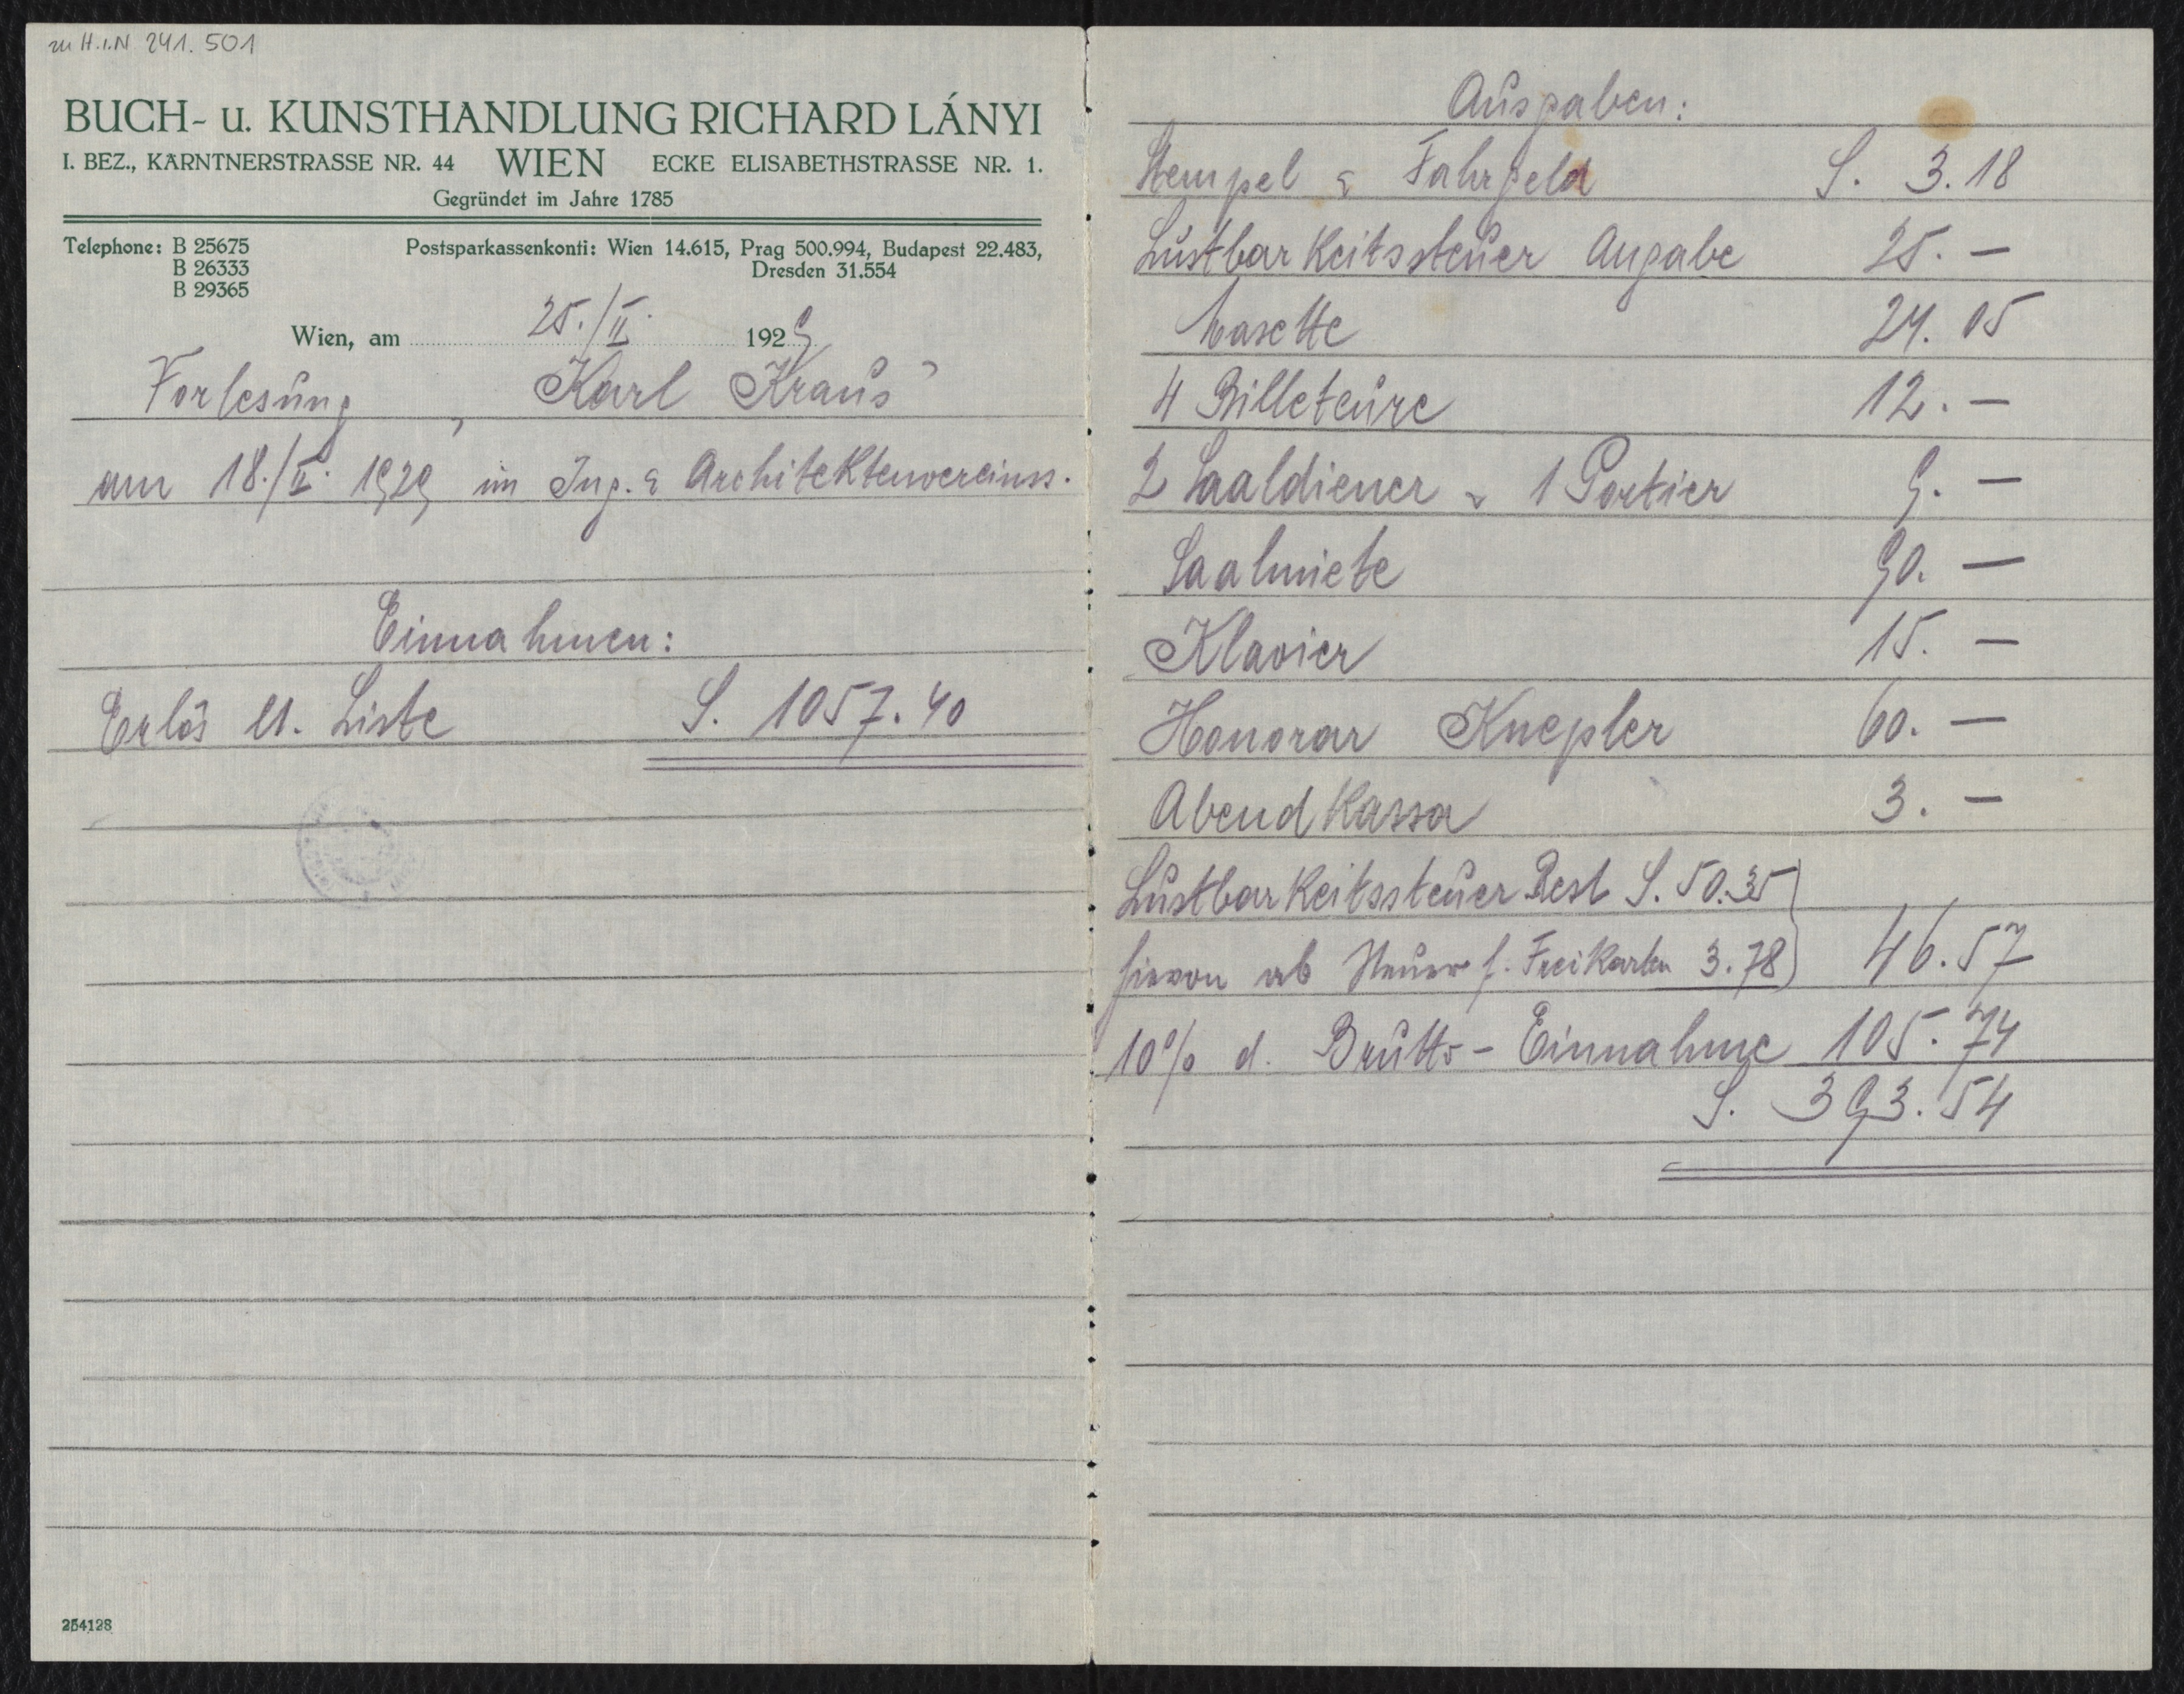 zu H.I.N 241.501
BUCH- u. KUNSTHANDLUNG RICHARD LÁNYI
I. BEZ., KÄRNTNERSTRASSE NR. 44 WIEN ECKE ELISABETHSTRASSE NR. 1.
Gegründet im Jahre 1785
Telephone: B 25675
B 26333
B 29365
Postsparkassenkonti: Wien 14.615, Prag 500.994, Budapest 22.483,
Dresden 31.554
Wien, am 25./II. 1929
Vorlesung „Karl Kraus"
am 18./II. 1929 im Ing. & Architektenvereinss.
Einnahmen:
Erlös lt. Liste S. 1057.40
254128
Ausgaben:
Stempel & Fahrgeld S. 3.18
Lustbarkeitssteuer Angabe 25.—
Inserate 24.05
4 Billeteure 12.—
2 Saaldiener & 1 Portier 9.—
Saalmiete 90.—
Klavier 15.—
Honorar Knepler 60.—
Abendkassa 3.—
Lustbarkeitssteuer Rest S. 50.35
hievon ab Steuer f. Freikarten 3.78 46.57
10% d. Brutto-Einnahme 105.74
S. 393.54